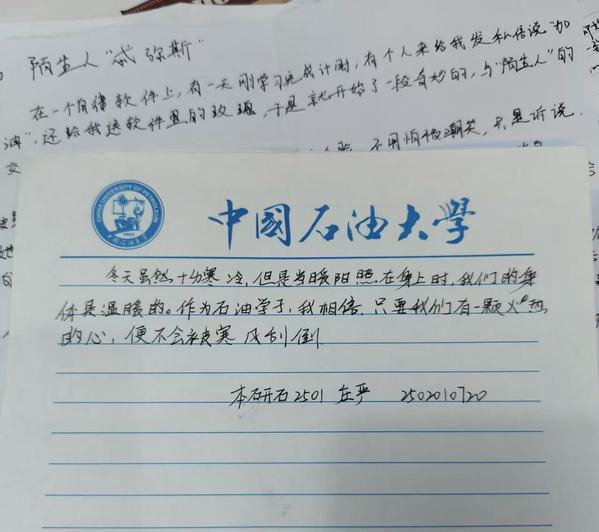 陌生人“威弥斯”
在一个自律软件上,有一天刚学习完成计时,有个人来给我发私信说“加
油”,还给我送软件里的玫瑰,于是就开始了一段奇妙的,与“陌生人”的
交
不用怕被嘲笑,只是诉说
CHINA UNIVERSITY OF PETROLEUM
1953
中国石油大学
中國石油大學
冬天虽然十分寒冷,但是当暖阳照在身上时,我们的身
体是温暖的。作为石油学子,我相信,只要我们有一颗火热
的心,便不会被寒风刮倒
本研石2501 庄严 2502010720